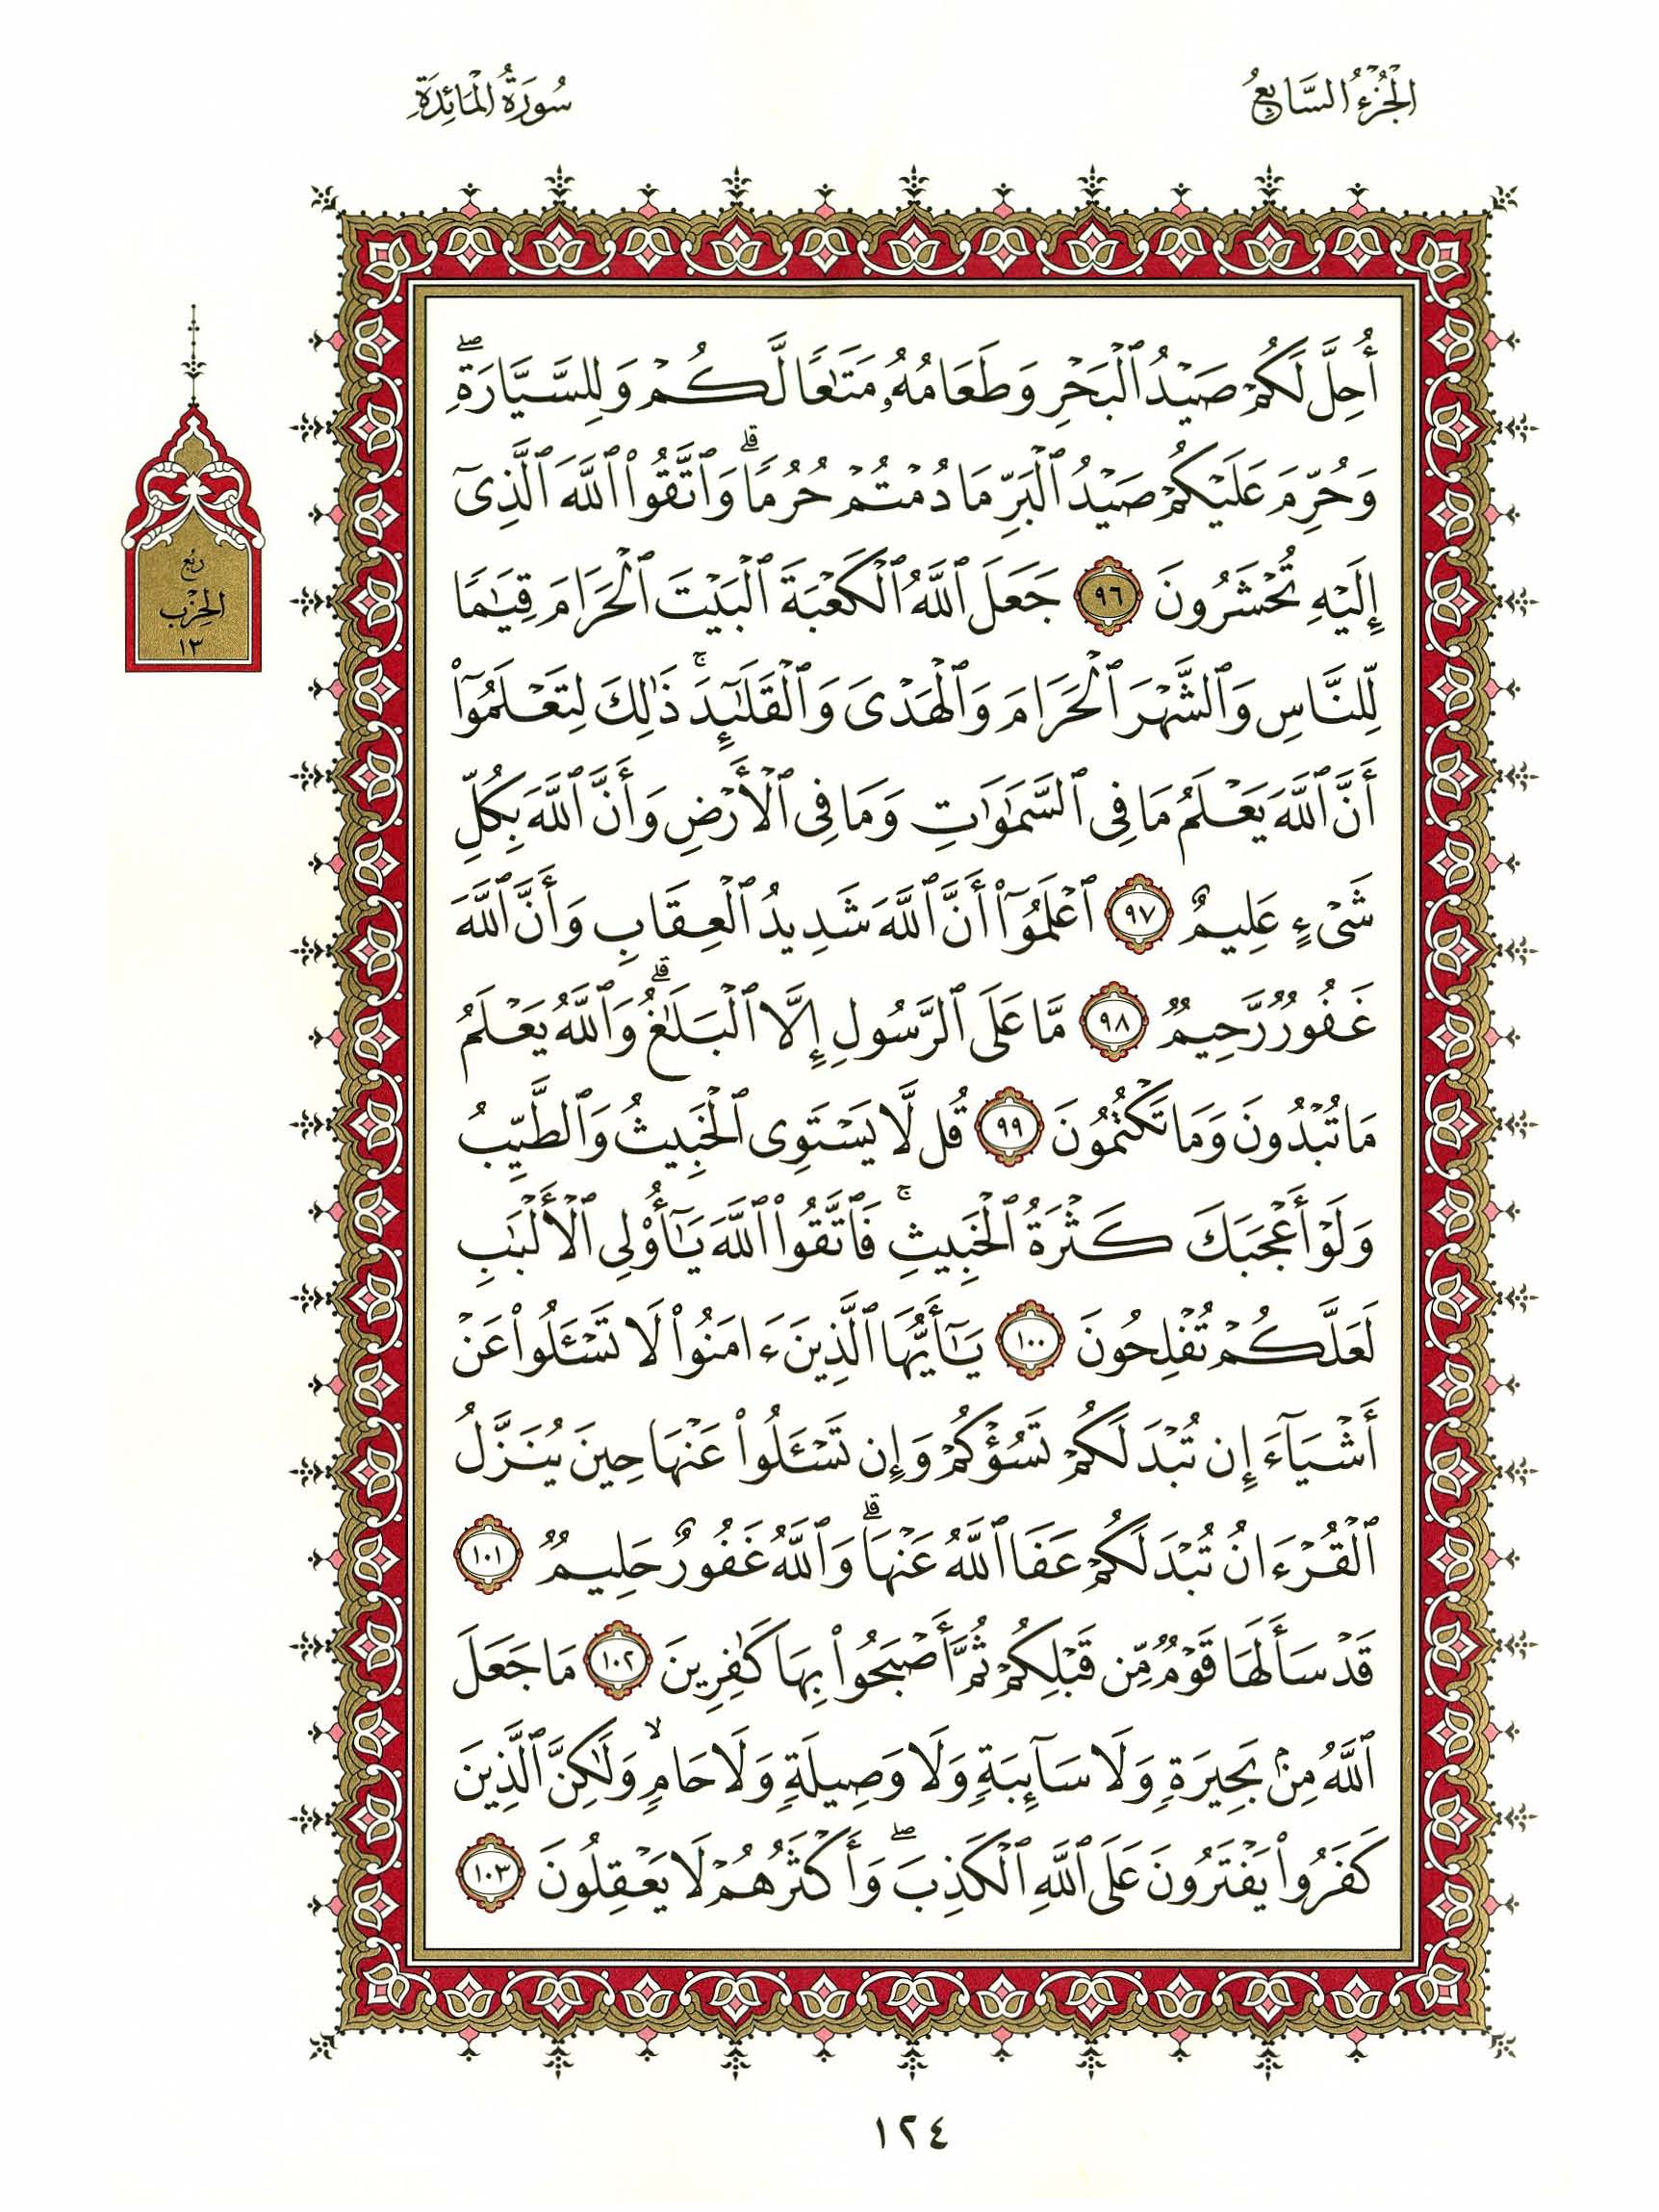 الْجُزْءُ السَّابِعُ
سُورَةُ الْمَائِدَةِ
أُحِلَّ لَكُمْ صَيْدُ ٱلْبَحْرِ وَطَعَامُهُۥ مَتَٰعًا لَّكُمْ وَلِلسَّيَّارَةِۖ
وَحُرِّمَ عَلَيْكُمْ صَيْدُ ٱلْبَرِّ مَا دُمْتُمْ حُرُمًاۗ وَٱتَّقُوا۟ ٱللَّهَ ٱلَّذِىٓ
إِلَيْهِ تُحْشَرُونَ ٩٦ جَعَلَ ٱللَّهُ ٱلْكَعْبَةَ ٱلْبَيْتَ ٱلْحَرَامَ قِيَٰمًا
لِّلنَّاسِ وَٱلشَّهْرَ ٱلْحَرَامَ وَٱلْهَدْىَ وَٱلْقَلَٰٓئِدَۚ ذَٰلِكَ لِتَعْلَمُوٓا۟
أَنَّ ٱللَّهَ يَعْلَمُ مَا فِى ٱلسَّمَٰوَٰتِ وَمَا فِى ٱلْأَرْضِ وَأَنَّ ٱللَّهَ بِكُلِّ
شَىْءٍ عَلِيمٌ ٩٧ ٱعْلَمُوٓا۟ أَنَّ ٱللَّهَ شَدِيدُ ٱلْعِقَابِ وَأَنَّ ٱللَّهَ
غَفُورٌ رَّحِيمٌ ٩٨ مَّا عَلَى ٱلرَّسُولِ إِلَّا ٱلْبَلَٰغُۗ وَٱللَّهُ يَعْلَمُ
مَا تُبْدُونَ وَمَا تَكْتُمُونَ ٩٩ قُل لَّا يَسْتَوِى ٱلْخَبِيثُ وَٱلطَّيِّبُ
وَلَوْ أَعْجَبَكَ كَثْرَةُ ٱلْخَبِيثِۚ فَٱتَّقُوا۟ ٱللَّهَ يَٰٓأُو۟لِى ٱلْأَلْبَٰبِ
لَعَلَّكُمْ تُفْلِحُونَ ١٠٠ يَٰٓأَيُّهَا ٱلَّذِينَ ءَامَنُوا۟ لَا تَسْـَٔلُوا۟ عَنْ
أَشْيَآءَ إِن تُبْدَ لَكُمْ تَسُؤْكُمْ وَإِن تَسْـَٔلُوا۟ عَنْهَا حِينَ يُنَزَّلُ
ٱلْقُرْءَانُ تُبْدَ لَكُمْ عَفَا ٱللَّهُ عَنْهَاۗ وَٱللَّهُ غَفُورٌ حَلِيمٌ ١٠١
قَدْ سَأَلَهَا قَوْمٌ مِّن قَبْلِكُمْ ثُمَّ أَصْبَحُوا۟ بِهَا كَٰفِرِينَ ١٠٢ مَا جَعَلَ
ٱللَّهُ مِنۢ بَحِيرَةٍ وَلَا سَآئِبَةٍ وَلَا وَصِيلَةٍ وَلَا حَامٍۙ وَلَٰكِنَّ ٱلَّذِينَ
كَفَرُوا۟ يَفْتَرُونَ عَلَى ٱللَّهِ ٱلْكَذِبَۖ وَأَكْثَرُهُمْ لَا يَعْقِلُونَ ١٠٣
رُبُع
الْحِزْب
١٣
١٢٤